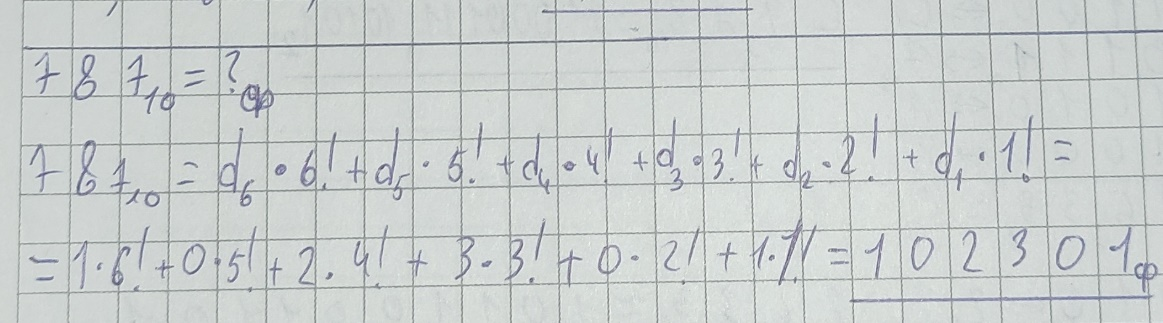 787₁₀ = ?ф
787₁₀ = d₆·6! + d₅·5! + d₄·4! + d₃·3! + d₂·2! + d₁·1! =
= 1·6! + 0·5! + 2·4! + 3·3! + 0·2! + 1·1! = 102301ф